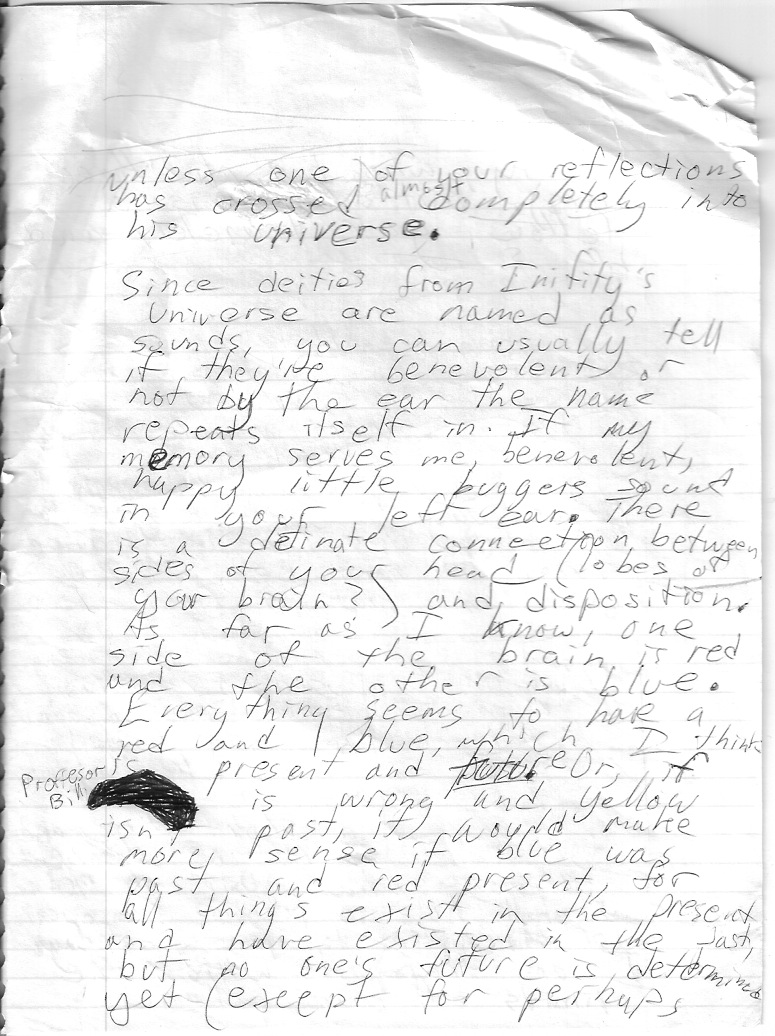 unless one of your reflections
has crossed almost completely into
his universe.
Since deities from Inifity's
universe are named as
sounds, you can usually tell
if they're benevolent or
not by the ear the name
repeats itself in. If my
memory serves me, benevolent,
happy little buggers sound
in your left ear. There
is a definate connection between
sides of your head (lobes of
your brain?) and, disposition.
As far as I know, one
side of the brain is red
and the other is blue.
Everything seems to have a
red and blue, which I think
is present and future Or, if
Proffesor
Bill is wrong and yellow
isn't past, it would make
more sense if blue was
past and red present, for
all things exist in the present
and have existed in the past,
but no one's future is determined
yet (except for perhaps